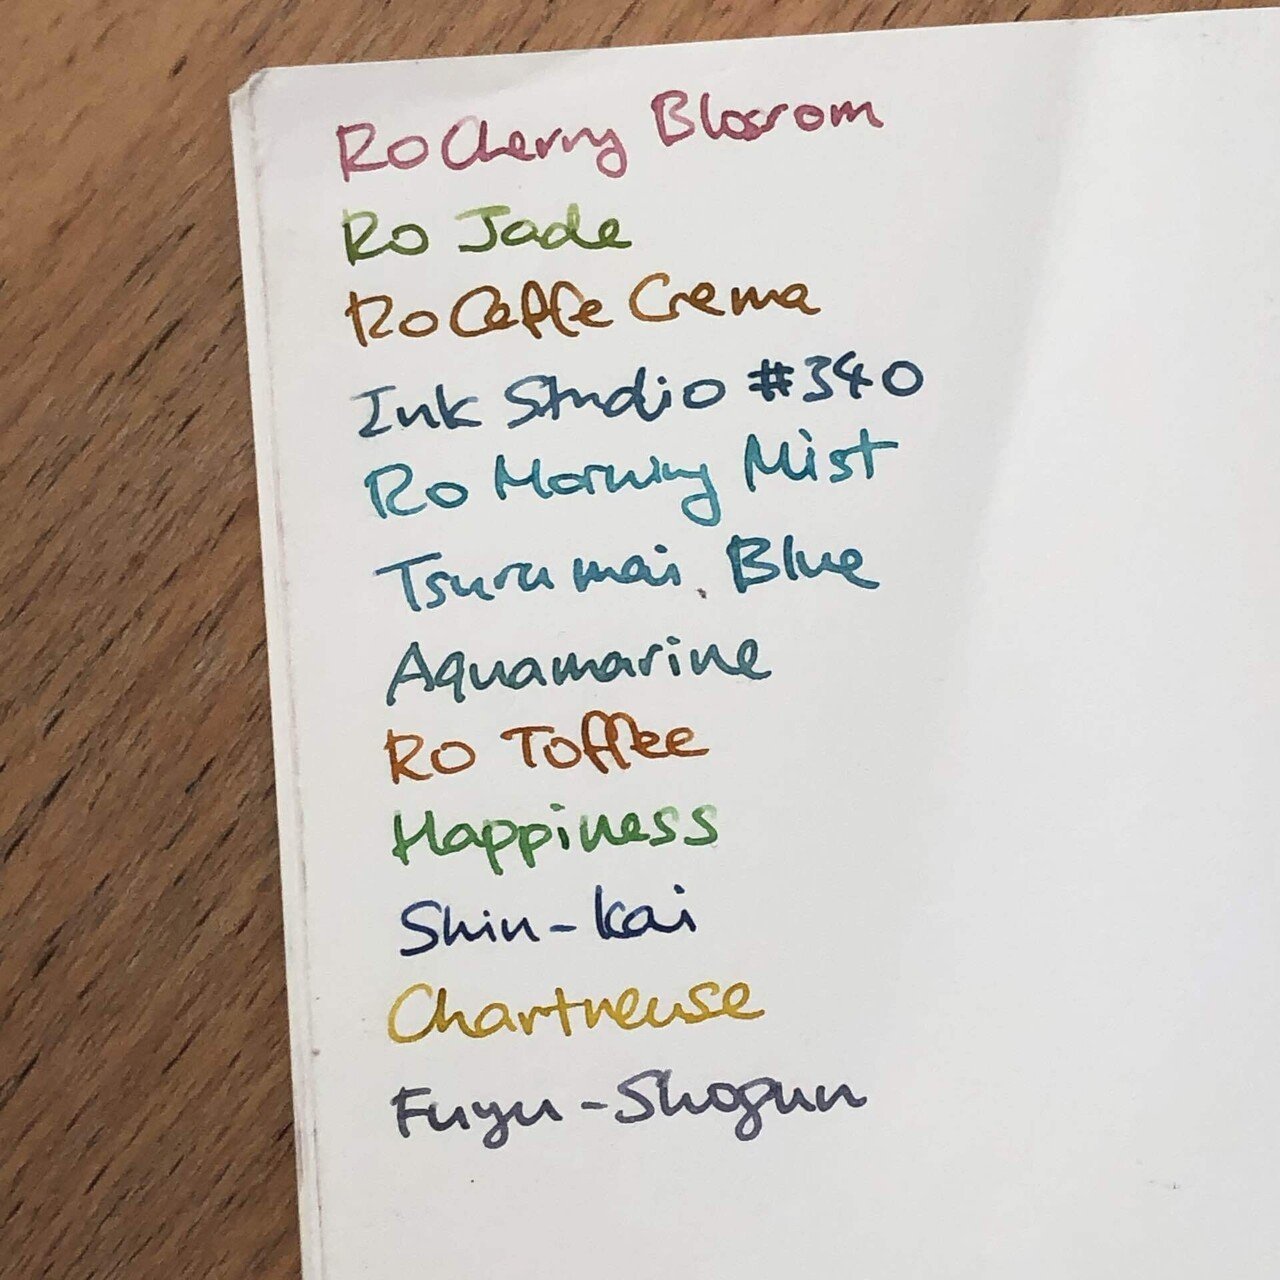 Ro Cherry Blossom
Ro Jade
Ro Caffe Crema
Ink Studio #340
Ro Morning Mist
Tsurumai Blue
Aquamarine
Ro Toffee
Happiness
Shin-kai
Chartreuse
Fuyu-Shogun